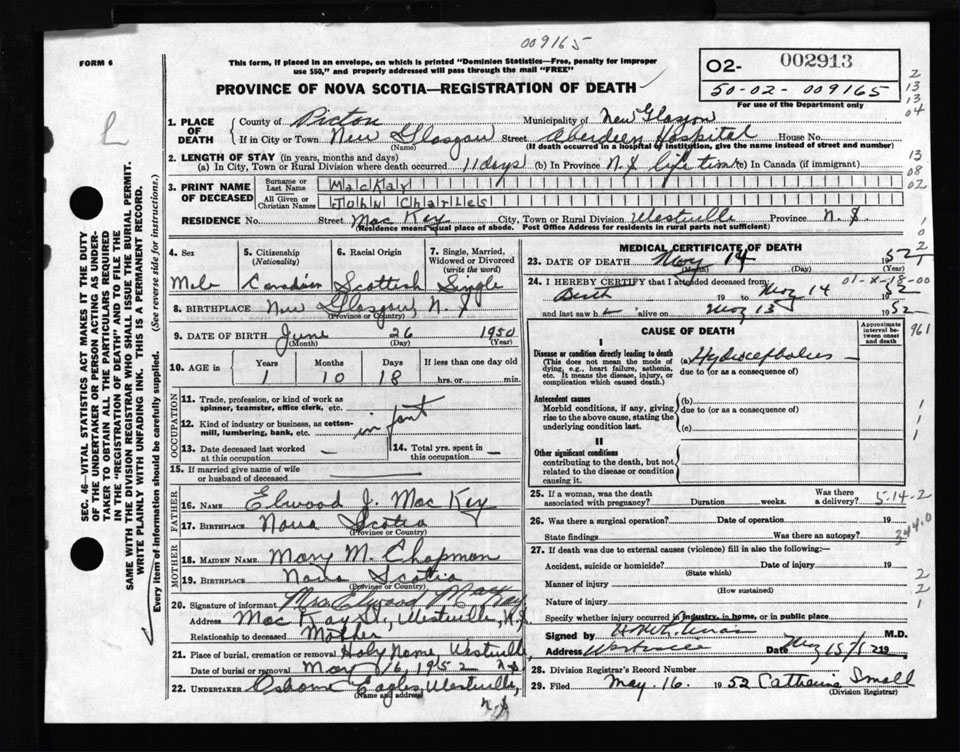 009165
FORM 6
This form, if placed in an envelope, on which is printed "Dominion Statistics—Free, penalty for improper
use $50," and properly addressed will pass through the mail "FREE"
PROVINCE OF NOVA SCOTIA—REGISTRATION OF DEATH
02- 002913
50-02-009165
For use of the Department only
2 13 13 04
13 08 02
SEC. 46—VITAL STATISTICS ACT MAKES IT THE DUTY
OF THE UNDERTAKER OR PERSON ACTING AS UNDER-
TAKER TO OBTAIN ALL THE PARTICULARS REQUIRED
IN THE "REGISTRATION OF DEATH" AND TO FILE THE
SAME WITH THE DIVISION REGISTRAR WHO SHALL ISSUE THE BURIAL PERMIT.
WRITE PLAINLY WITH UNFADING INK. THIS IS A PERMANENT RECORD.
Every item of information should be carefully supplied. (See reverse side for instructions.)
1. PLACE OF DEATH
County of Pictou Municipality of New Glasgow
If in City or Town New Glasgow Street Aberdeen Hospital House No.
(Name) (If death occurred in a hospital or institution, give the name instead of street and number)
2. LENGTH OF STAY (in years, months and days)
(a) In City, Town or Rural Division where death occurred 11 days (b) In Province N.S. life time (c) In Canada (if immigrant)
3. PRINT NAME OF DECEASED
Surname or Last Name MacKay
All Given or Christian Names John Charles
RESIDENCE No. Street MacKay City, Town or Rural Division Westville Province N.S.
(Residence means usual place of abode. Post Office Address for residents in rural parts not sufficient)
4. Sex Male
5. Citizenship (Nationality) Canadian
6. Racial Origin Scottish
7. Single, Married, Widowed or Divorced (write the word) Single
8. BIRTHPLACE New Glasgow, N.S.
(Province or Country)
9. DATE OF BIRTH June 26 1950
(Month) (Day) (Year)
10. AGE in Years 1 Months 10 Days 18 If less than one day old
hrs. or min.
OCCUPATION
11. Trade, profession, or kind of work as
spinner, teamster, office clerk, etc.
12. Kind of industry or business, as cotton-
mill, lumbering, bank, etc.
infant
13. Date deceased last worked
at this occupation —
14. Total yrs. spent in
this occupation —
15. If married give name of wife
or husband of deceased —
FATHER
16. NAME Elwood J. MacKay
17. BIRTHPLACE Nova Scotia
(Province or Country)
MOTHER
18. MAIDEN NAME Mary M. Chapman
19. BIRTHPLACE Nova Scotia
(Province or Country)
20. Signature of informant Mrs Elwood MacKay
Address MacKay St, Westville, N.S.
Relationship to deceased Mother
21. Place of burial, cremation or removal Holy Name, Westville,
Date of burial or removal May 16, 1952 N.S.
22. UNDERTAKER Eagles, Westville,
(Name and address)
N.S.
MEDICAL CERTIFICATE OF DEATH
23. DATE OF DEATH May 14 1952
(Month) (Day)
24. I HEREBY CERTIFY that I attended deceased from: 01-X-18-00
Birth 19 to May 14 1952
and last saw h alive on May 13 1952
CAUSE OF DEATH
Approximate interval between onset and death
961
I
Disease or condition directly leading to death
(This does not mean the mode of
dying, e.g., heart failure, asthenia,
etc. It means the disease, injury, or
complication which caused death.)
(a) Hydrocephalus
due to (or as a consequence of)
Antecedent causes
Morbid conditions, if any, giving
rise to the above cause, stating the
underlying condition last.
(b)
due to (or as a consequence of)
(c)
II
Other significant conditions
contributing to the death, but not
related to the disease or condition
causing it.
25. If a woman, was the death
associated with pregnancy? Duration weeks. Was there
a delivery? 5.14.2
26. Was there a surgical operation? Date of operation 19
State findings Was there an autopsy? 344.0
27. If death was due to external causes (violence) fill in also the following:—
Accident, suicide or homicide? Date of injury 19
(State which)
Manner of injury
(How sustained)
Nature of injury
Specify whether injury occurred in industry, in home, or in public place
Signed by M.D.
Address Westville Date May 15/52 19
28. Division Registrar's Record Number
29. Filed May. 16. 1952 Catherine Small
(Division Registrar)